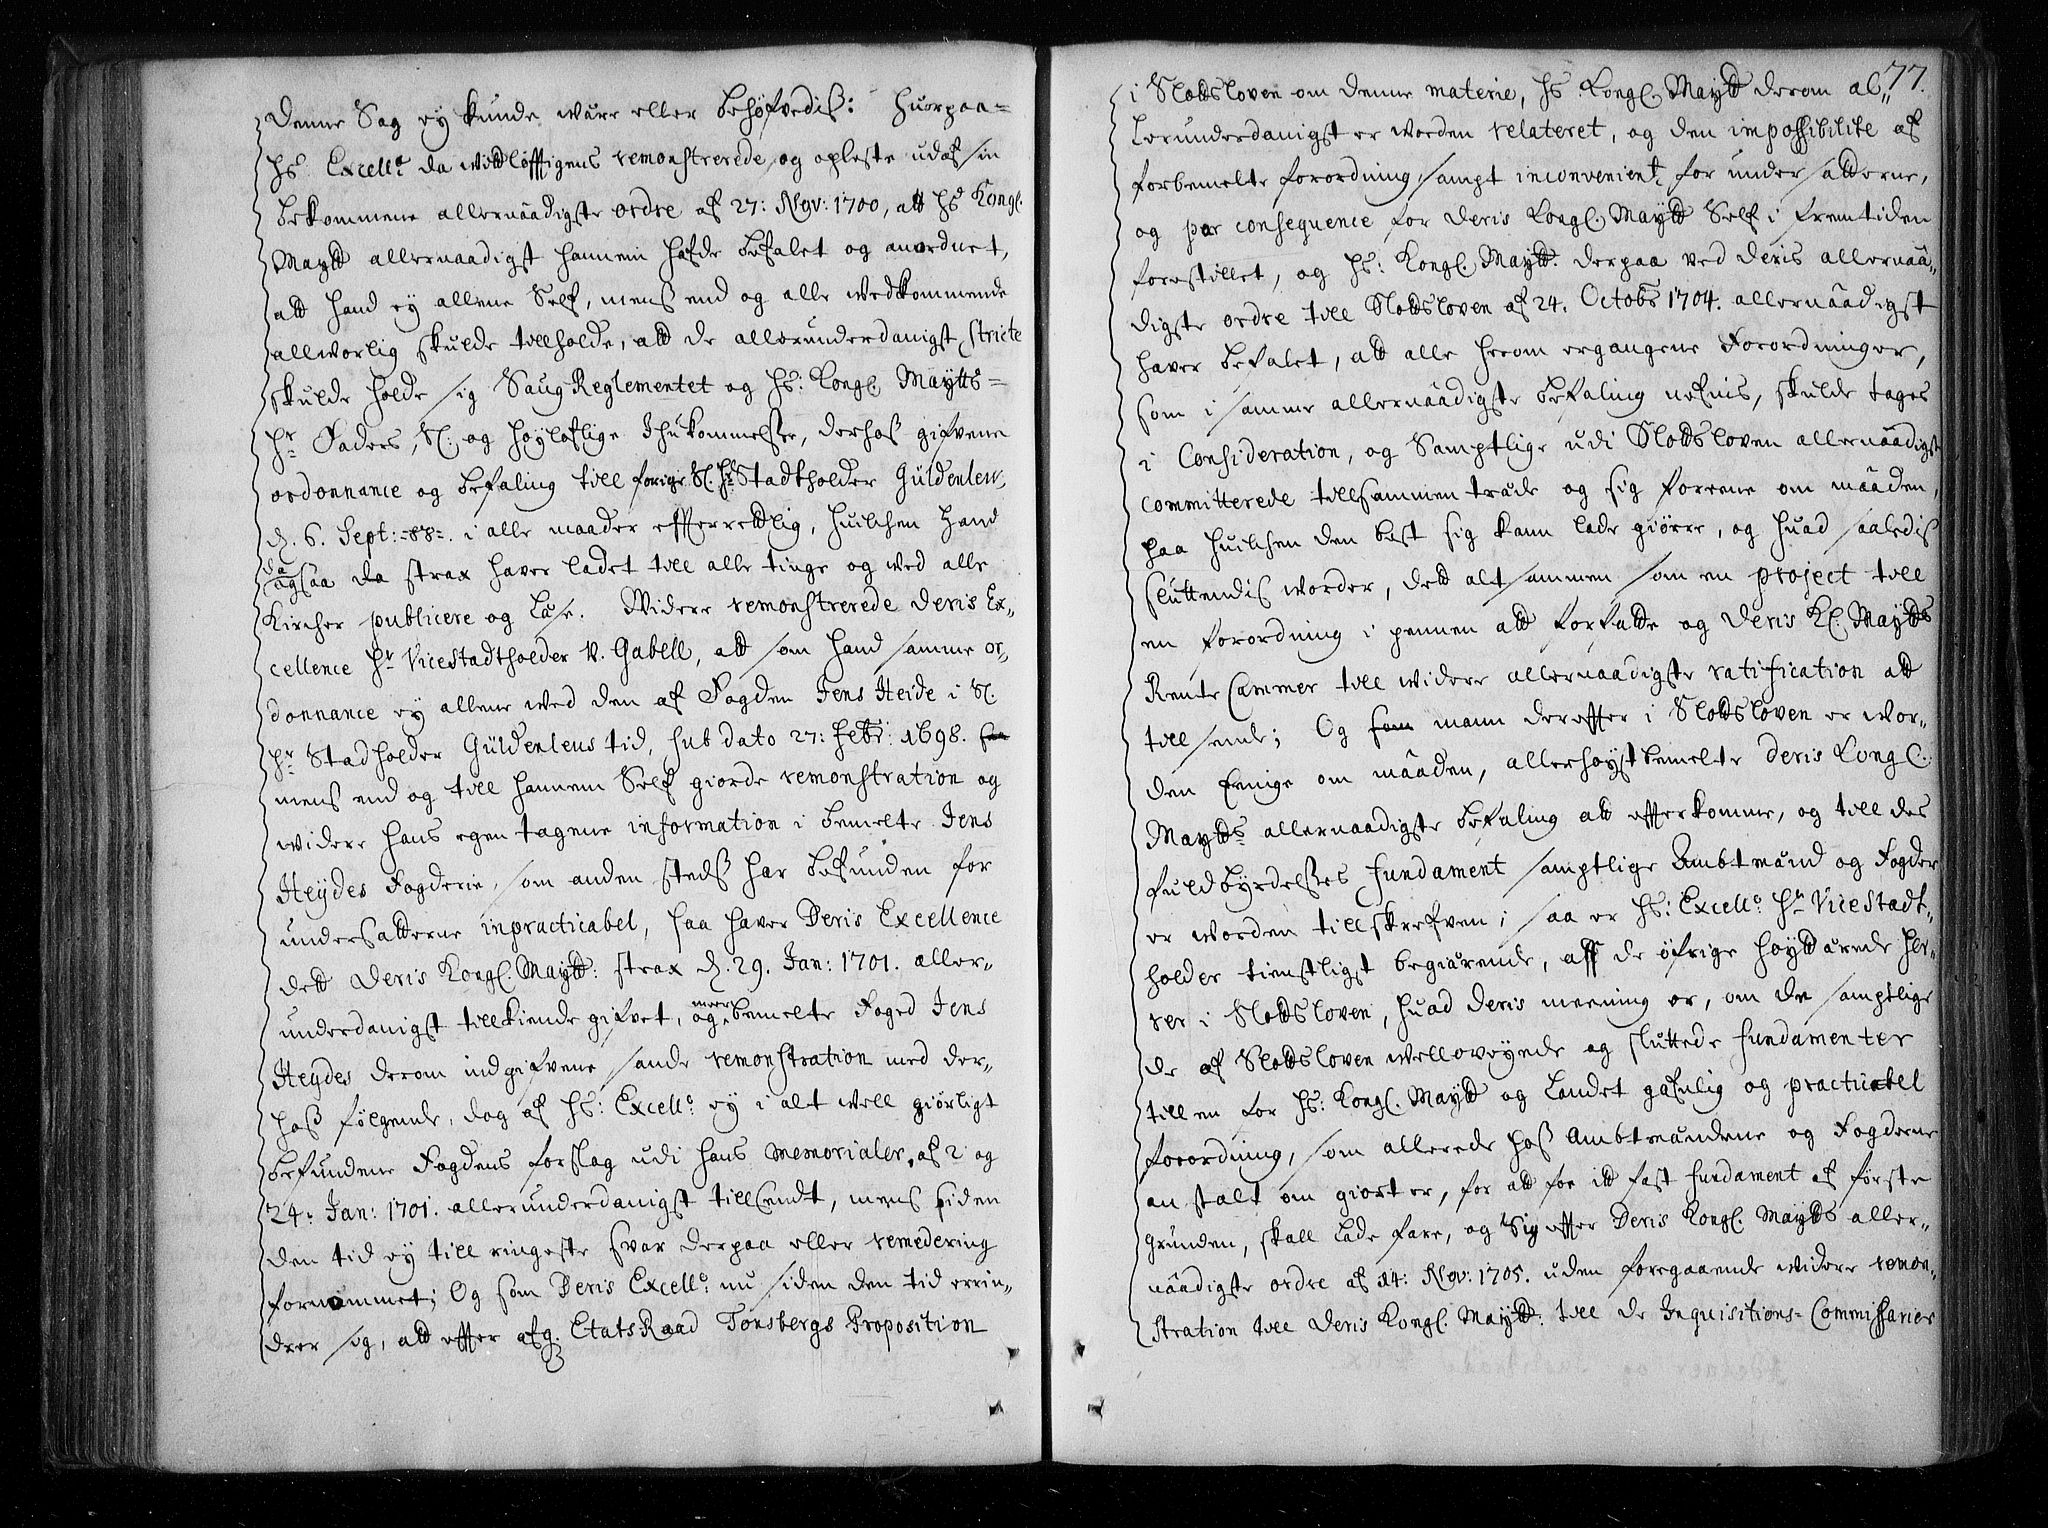 Denne Sag ey kunde være eller behøfvedis: Huorpaa=
Hs. Excell: da widtløfftigens remonstrerede og opleste udaf sin
bekommene allernaadigste ordre af 27: Nov: 1700, att Hs Kongl.
Maytt allernaadigst hannem hafde befalet og anordnet,
att hand ey allene Self, mens end og alle wedkommende
allworlig skulde tillholde, att de allerunderdanigst stricte
skulde holde sig Saug Reglementet og Hs: Kongl. Maytts=
Hr Faders, Sl. og høyloflige Ihukommelse, derhos gifvene
ordonnance og befaling till forige Sl. Hr Stadtholder Güldenlew,
d. 6. Sept: -88-. i alle maader efferrettlig, huilchen Hand
da
ogsaa da strax haver ladet till alle tinge og wed alle
Kircher publicere og læse. Widere remonstrerede Deris Ex-
cellence Hr Vicestadtholder v. Gabell, att som hand samme or-
donnance ey allene wed den af Fogden Jens Heide i Sl.
Hr Stadholder Güldenleus tid, sub dato 27: Febr: 1698.
mens end og till hannem Self giorde remonstration og
widere hans egen tagene information i bemelte Jens
Heydes Fogderie, som anden steds har befunden for
undersatterne inpracticabel, saa haver Deris Excellence
dett Deris Kongl. Maytt: strax d. 29. Jan: 1701. aller-
underdanigst tillkiende gifvet, og meerbemelte Foged Jens
Heydes derom indgifvene sande remonstration med der-
hos følgende, dog af Hs: Excell: ey i alt well giørligt
befundene Fogdens forslag udi hans Memorialer, af 2 og
24: Jan: 1701. allerunderdanigst tillsendt, mens siden
den tid ey till ringeste svar derpaa eller remedering
fornommet; Og som Deris Excell: nu siden den tid errin-
drer sig, att effer afg. EtatsRaad Tonsbergs Proposition
77.
i Slottsloven om denne materie, Hs. Kongl. Maytt derom al-
lerunderdanigst er worden relateret, og den impossibilite af
forbemelte forordning, sampt inconvenient for undersatterne,
og par consequence for Deris Kongl. Maytt Self i fremtiden
forestillet, og Hs: Kongl. Maytt. derpaa ved Deris allernaa-
digste ordre till Slottsloven af 24. Octobr 1704. allernaadigst
haver befalet, att alle herom ergangene Forordninger,
som i samme allernaadigste befaling nefnis, skulde tages
i Consideration, og Samptlige udi Slottsloven allernaadigst
committerede tillsammen træde og sig foreene om maaden,
paa huilchen den best sig kunn lade giørre, og huad saaledis
sluttendis worder, dett alt sammen som en project till
en forordning i pennen att forfatte og Deris Kl. Maytts
Rente Cammer till widere allernaadigste ratification att
tillsende; Og som mann dereffer i Slottsloven er wor-
den Eenige om maaden, allerhøystbemelte Deris Kongl.
Maytts allernaadigste befaling att efferkomme, og till des
fuldbyrdelses fundament samptlige Ambtmænd og Fogder
er worden tillskrefven; saa er Hs: Excell: Hr Vicestadt-
holder tienstligst begiærende, aff de øfrige høyttærede Her-
rer i Slottsloven, huad deris meening er, om de samptlige
de af Slottsloven welloveynde og sluttede fundamenter
till en for Hs: Kongl. Maytt og Landet gafnlig og practicabel
forordning, som allerede hos Ambtmændene og Fogderne
anstalt om giort er, for att for itt fast fundament af første
grunden, skall lade fare, og Sig effer Deris Kongl. Maytts aller-
naadigste ordre af 14: Nov: 1705. uden foregaaende widere remon-
stration till Deris Kongl. Maytt: till de Inquisitions-Commissarier